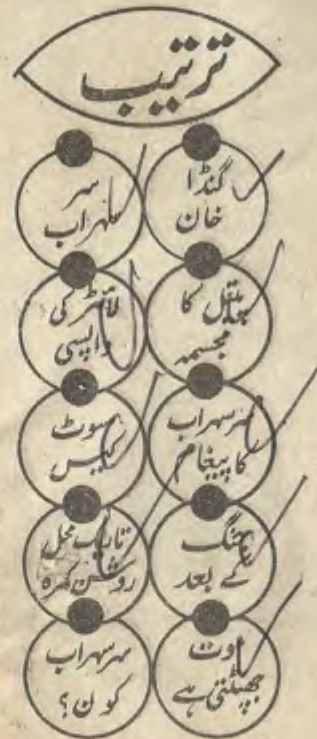 ترتیب
گنڈا
خان
سر
سہراب
پیتل کا
مجسمہ
لائٹر کی
واپسی
سر سہراب
کا پیغام
سوٹ
کیس
جنگ
کے بعد
تاریک محل
روشن کمرہ
موت
جھپٹتی ہے
سر سہراب
کون؟